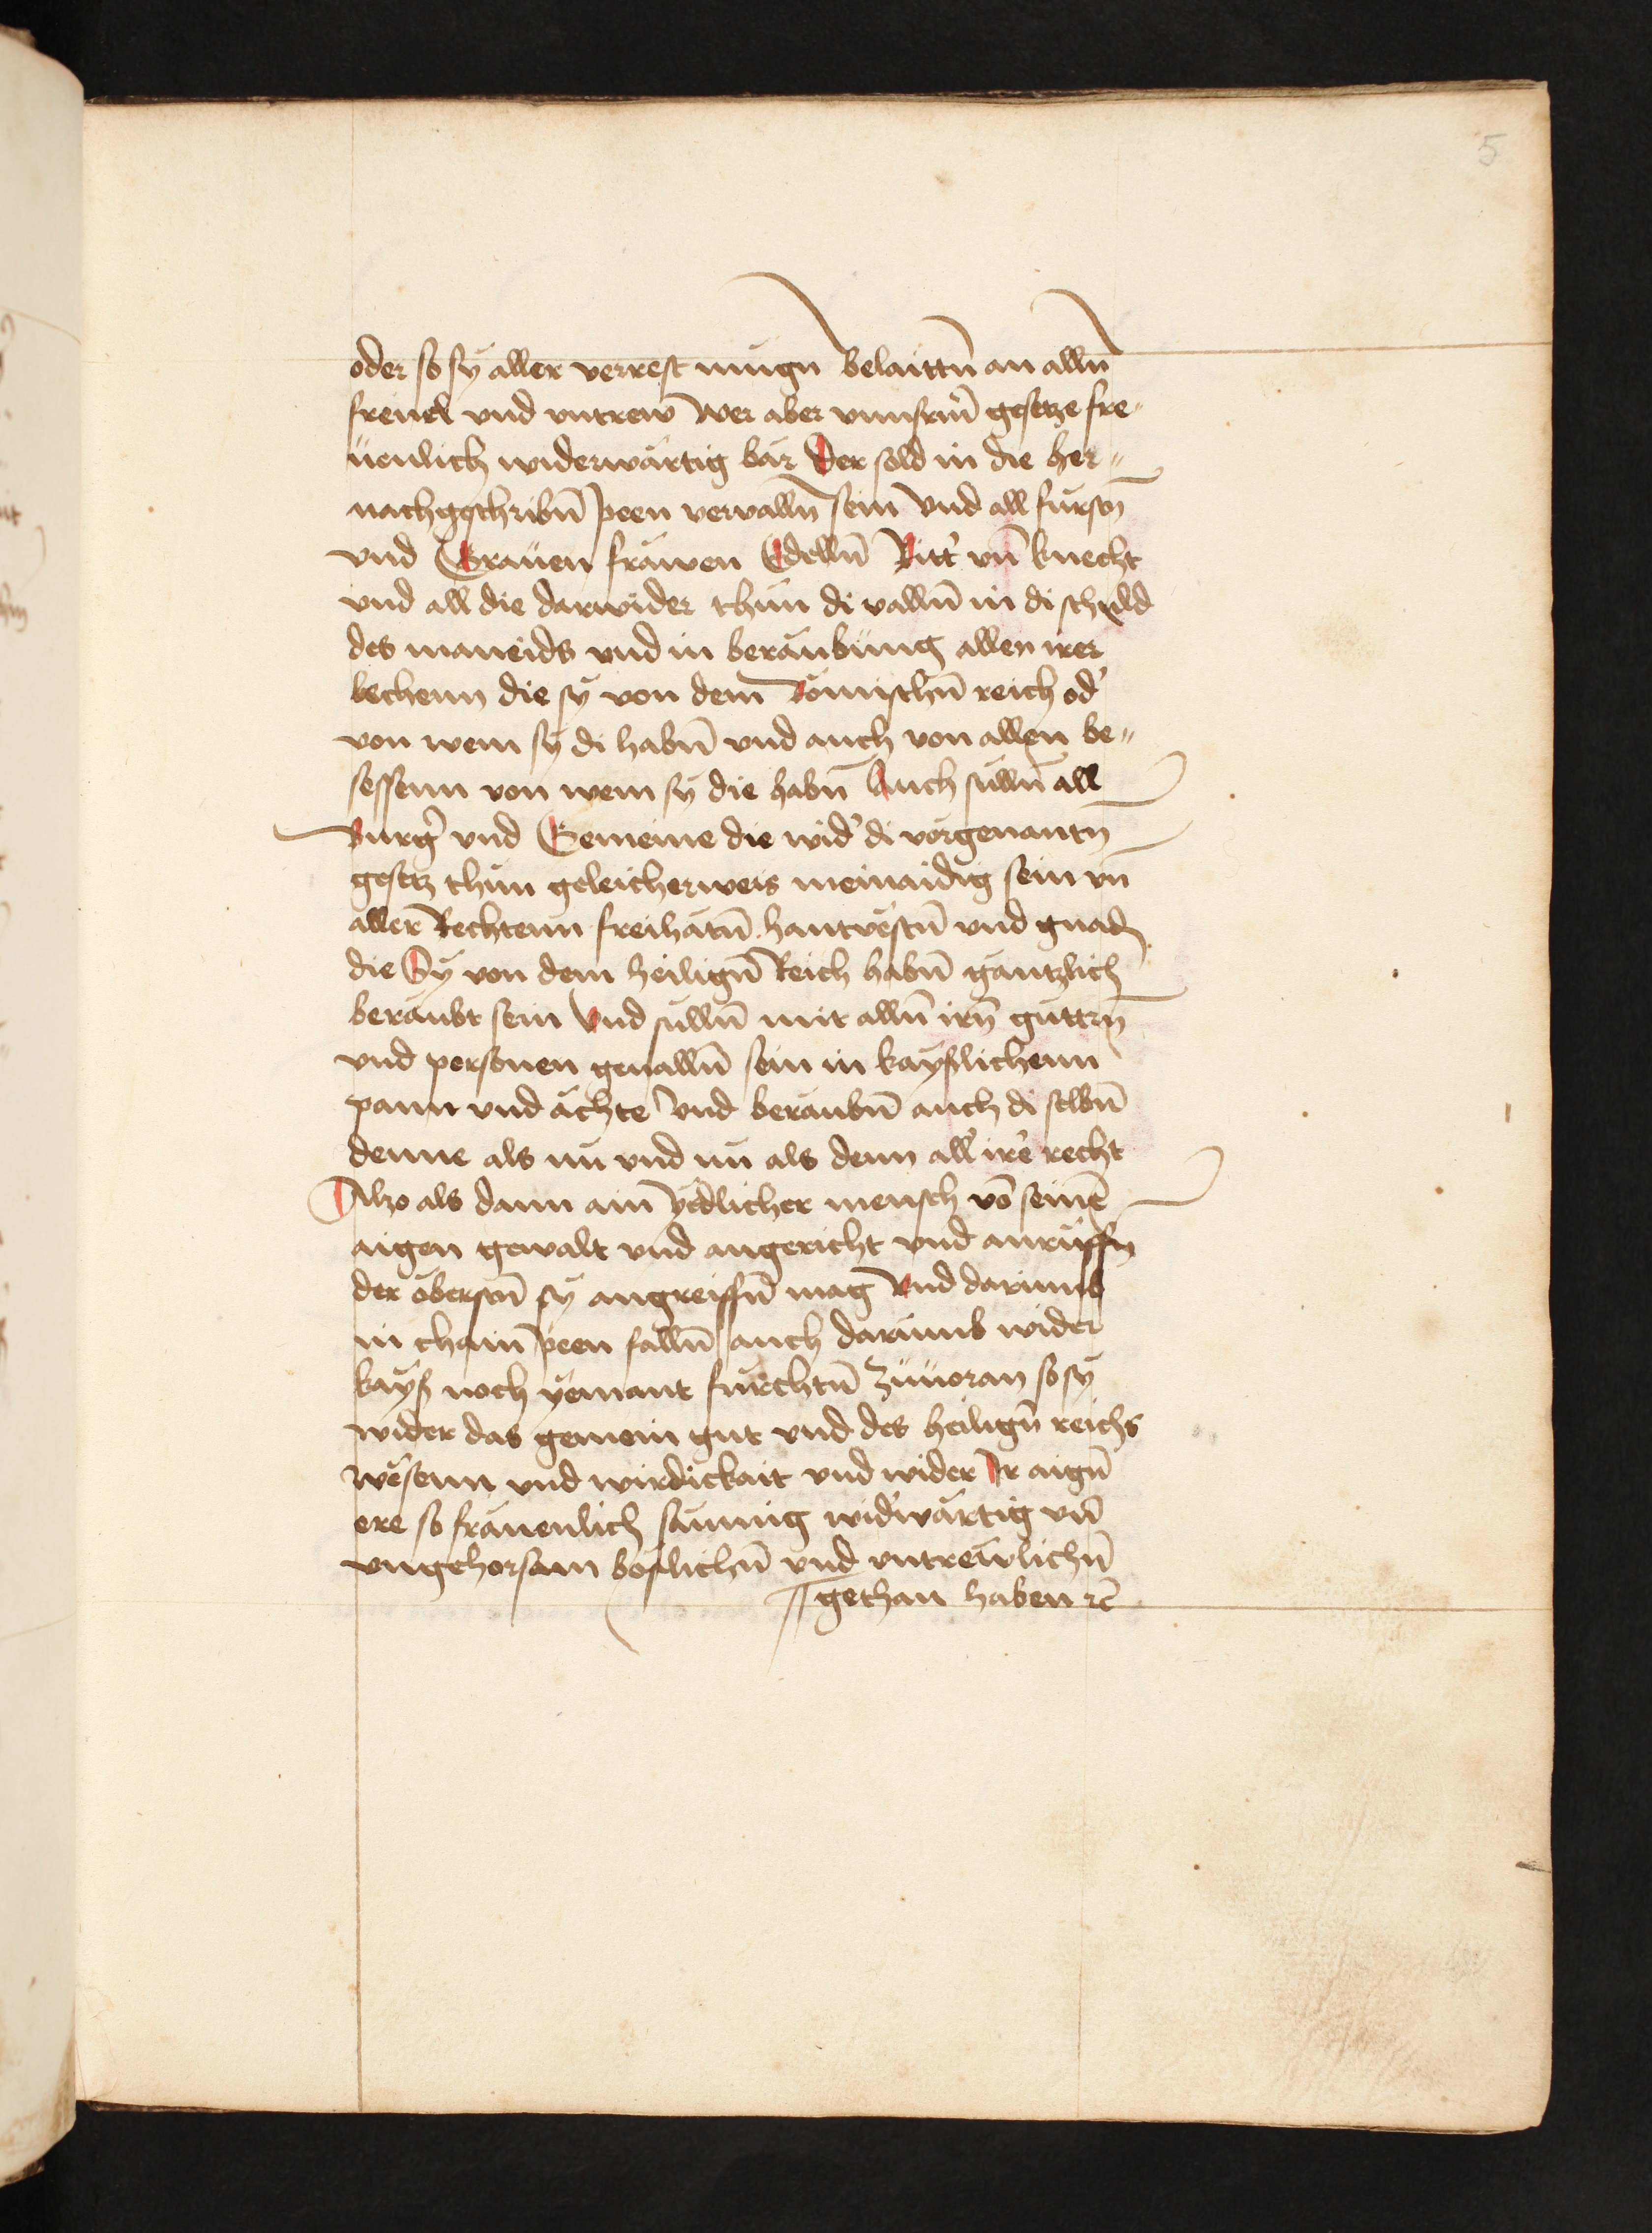 5
oder so sy aller verrest mugn belaittn̄ an alln̄
freuel vnd vntrew Wer aber vnnsrm̄ gesetze fre„
üenlich widerwärtig bär Der sold in die her„
nachgeschribn̄ peen vervalln̄ sein vnd all fürstn̄
vnd Grauen fräwen Edelln̄ Ritt' vn̄ knecht
vnd all die darwider thün di valln̄ in di schuld
des maneids vnd in beraubüng allen irer
lechenn die sy von dem Römischn̄ reich od'
von wem sy di habn̄ vnd auch von allen be„
sessenn von wem sy die habn̄ Auch sülln̄ all
Burg' vnd Gemeine die wid' di vorgenantn̄
gesetz thün geleicherweis meinaidig sein vn̄
aller Rechtenn freihätn̄ hantvestn̄ vnd gnadn̄
die Sy von dem heilign̄ Reich habn̄ gäntzlich
beraubt sein Vnd sülln̄ mit alln̄ irn̄ güttrn̄
vnd personen geualln̄ sein in kayslichenn
pann vnd ächte Vnd beraubn̄ auch di selbn̄
denne als nü vnd nü als denn all' ire' recht
Alzo als dann ain ÿedlicher mensch vō seinē
aigen gewalt vnd angericht vnd anrüffn̄
der öberstn̄ sy angreiffn̄ mag Vnd darümb
in chain peen falln̄ auch darümb wider
kays' noch yemant fürchtn̄ Züuoran so sy
wider das gemein gut vnd des heilign̄ reichs
wesenn vnd wirdickait vnd wider Ir aign̄
ere so fräuenlich säumig wid'wärtig vn̄
vngehorsam böslichn̄ vnd vntrewlichn̄
gethan haben ꝛc̄